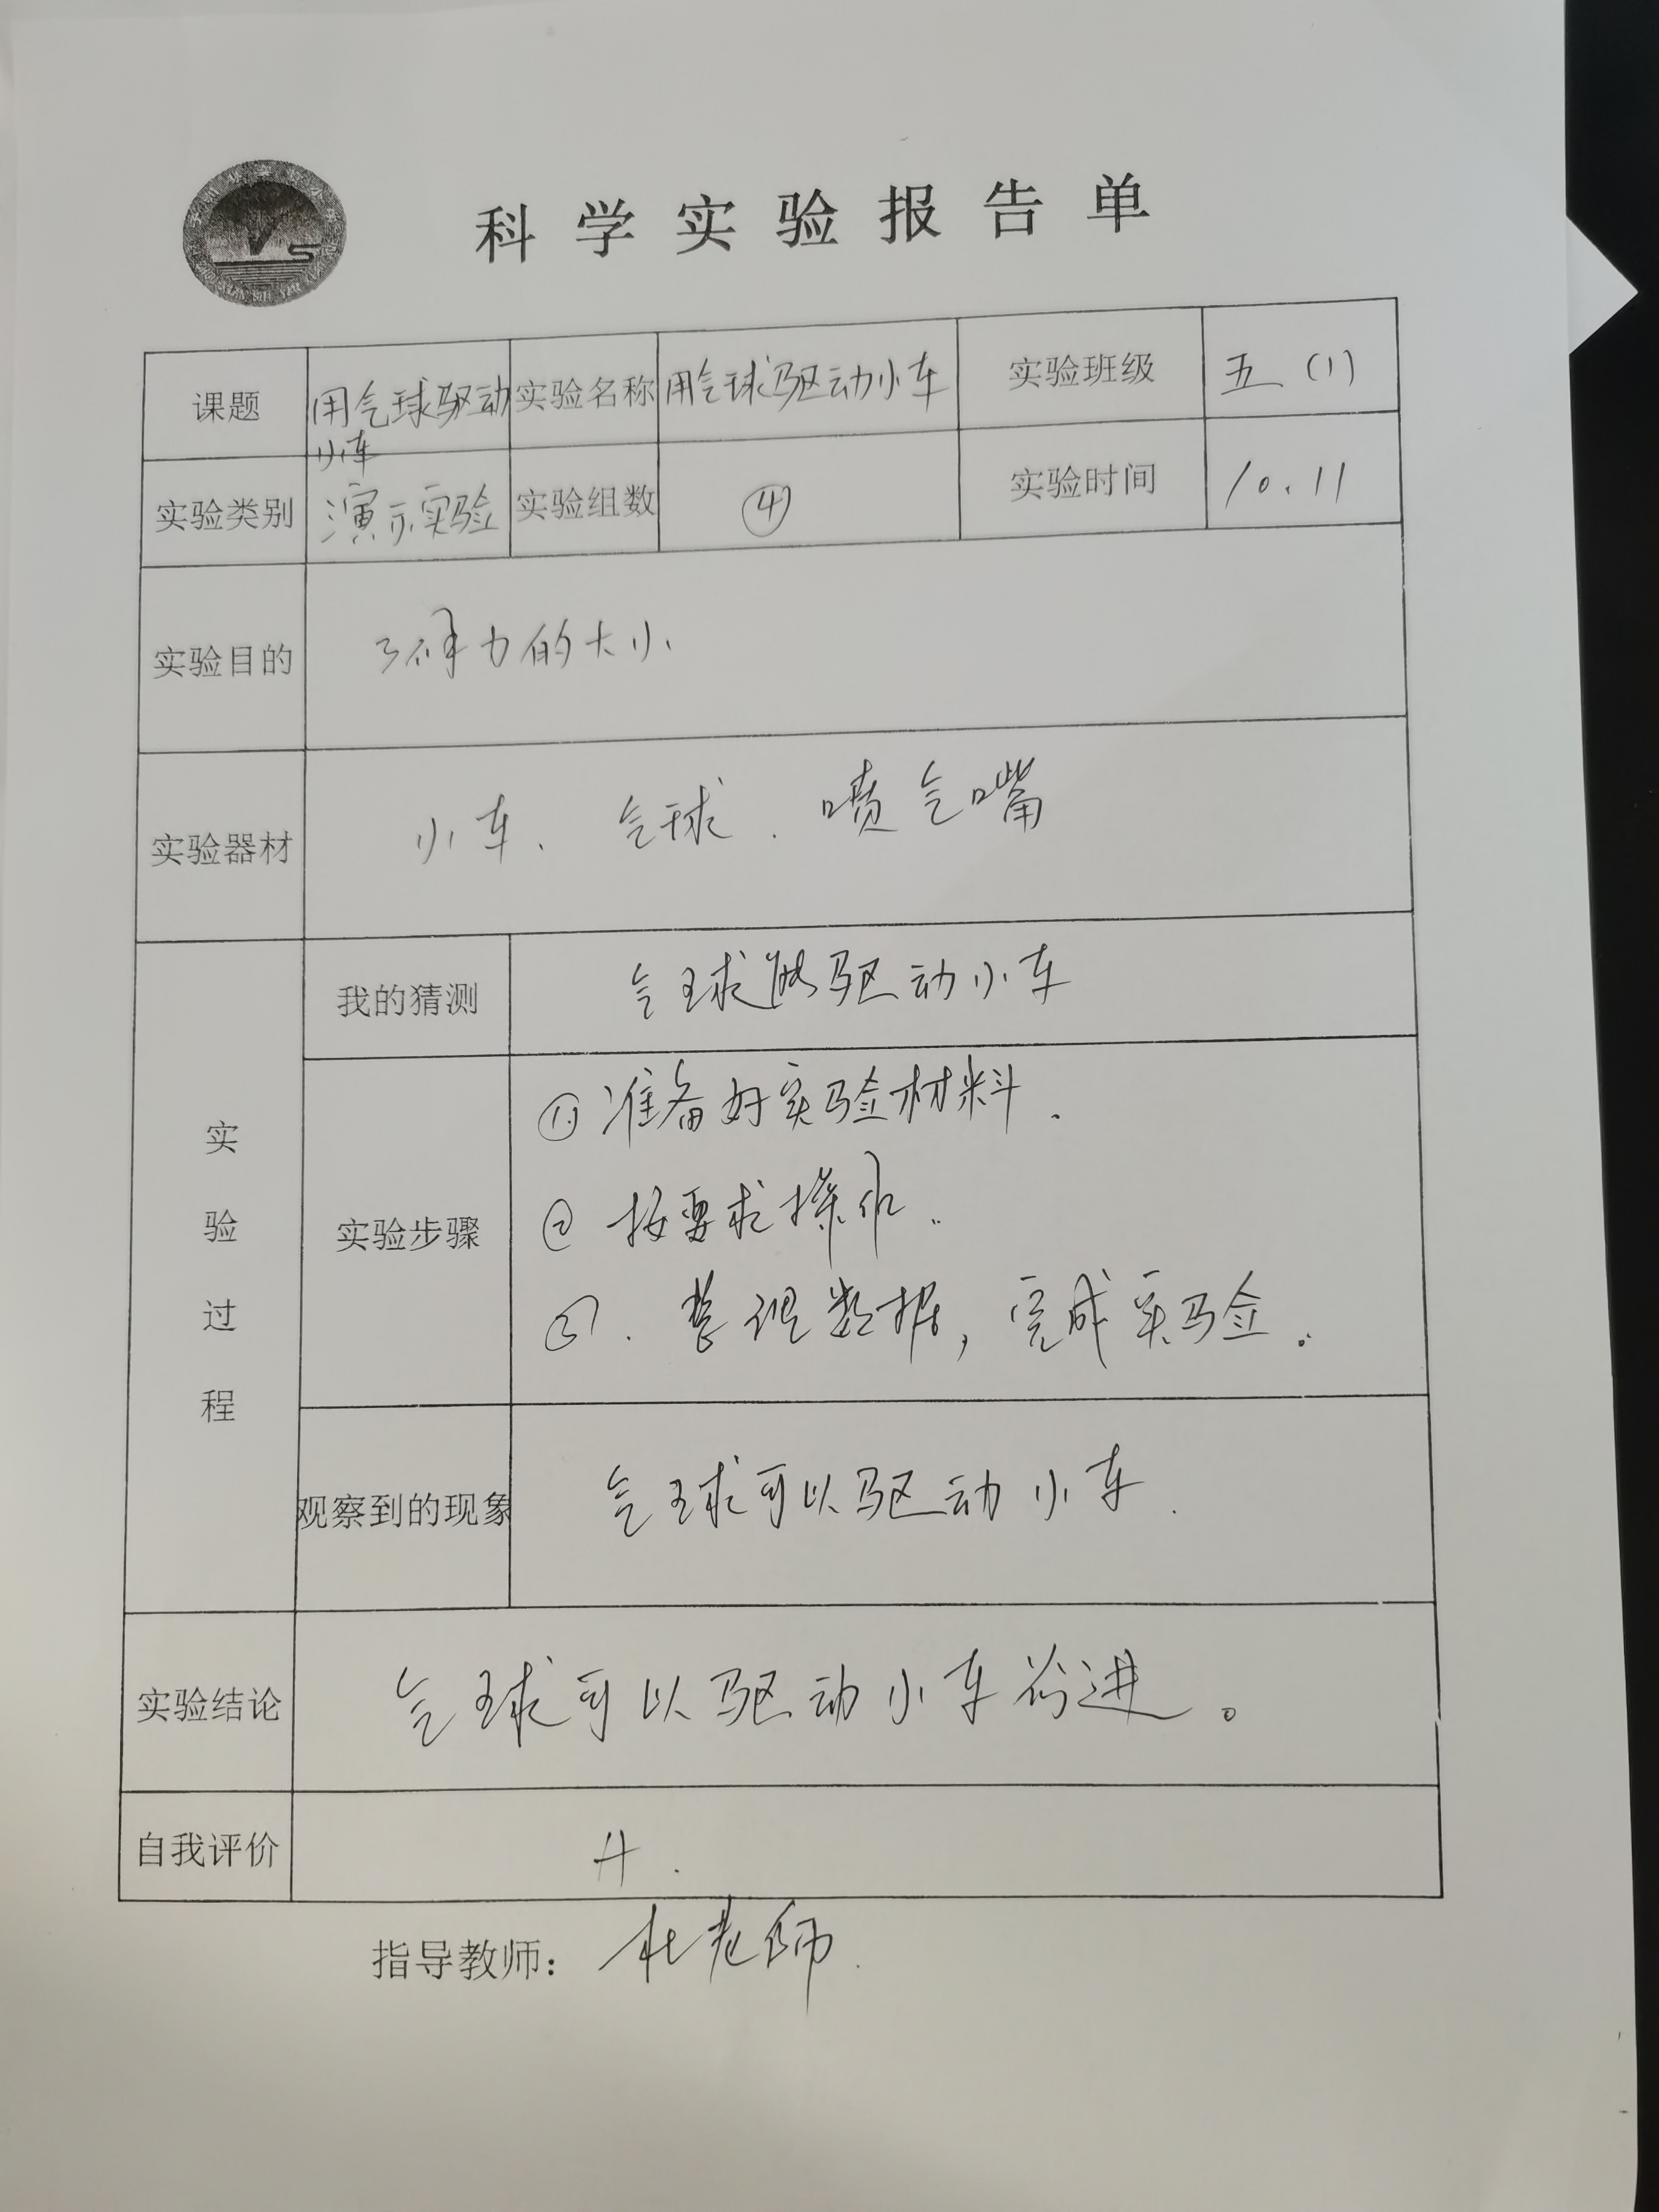 科学实验报告单
课题 用气球驱动小车 实验名称 用气球驱动小车 实验班级 五(1)
实验类别 演示实验 实验组数 ④ 实验时间 10.11
实验目的 了解力的大小
实验器材 小车、气球、喷气嘴
实验过程
我的猜测 气球能驱动小车
实验步骤 ①准备好实验材料.
② 按要求操作.
③. 整理数据,完成实验.
观察到的现象 气球可以驱动小车.
实验结论 气球可以驱动小车前进。
自我评价 A.
指导教师: 杜老师.